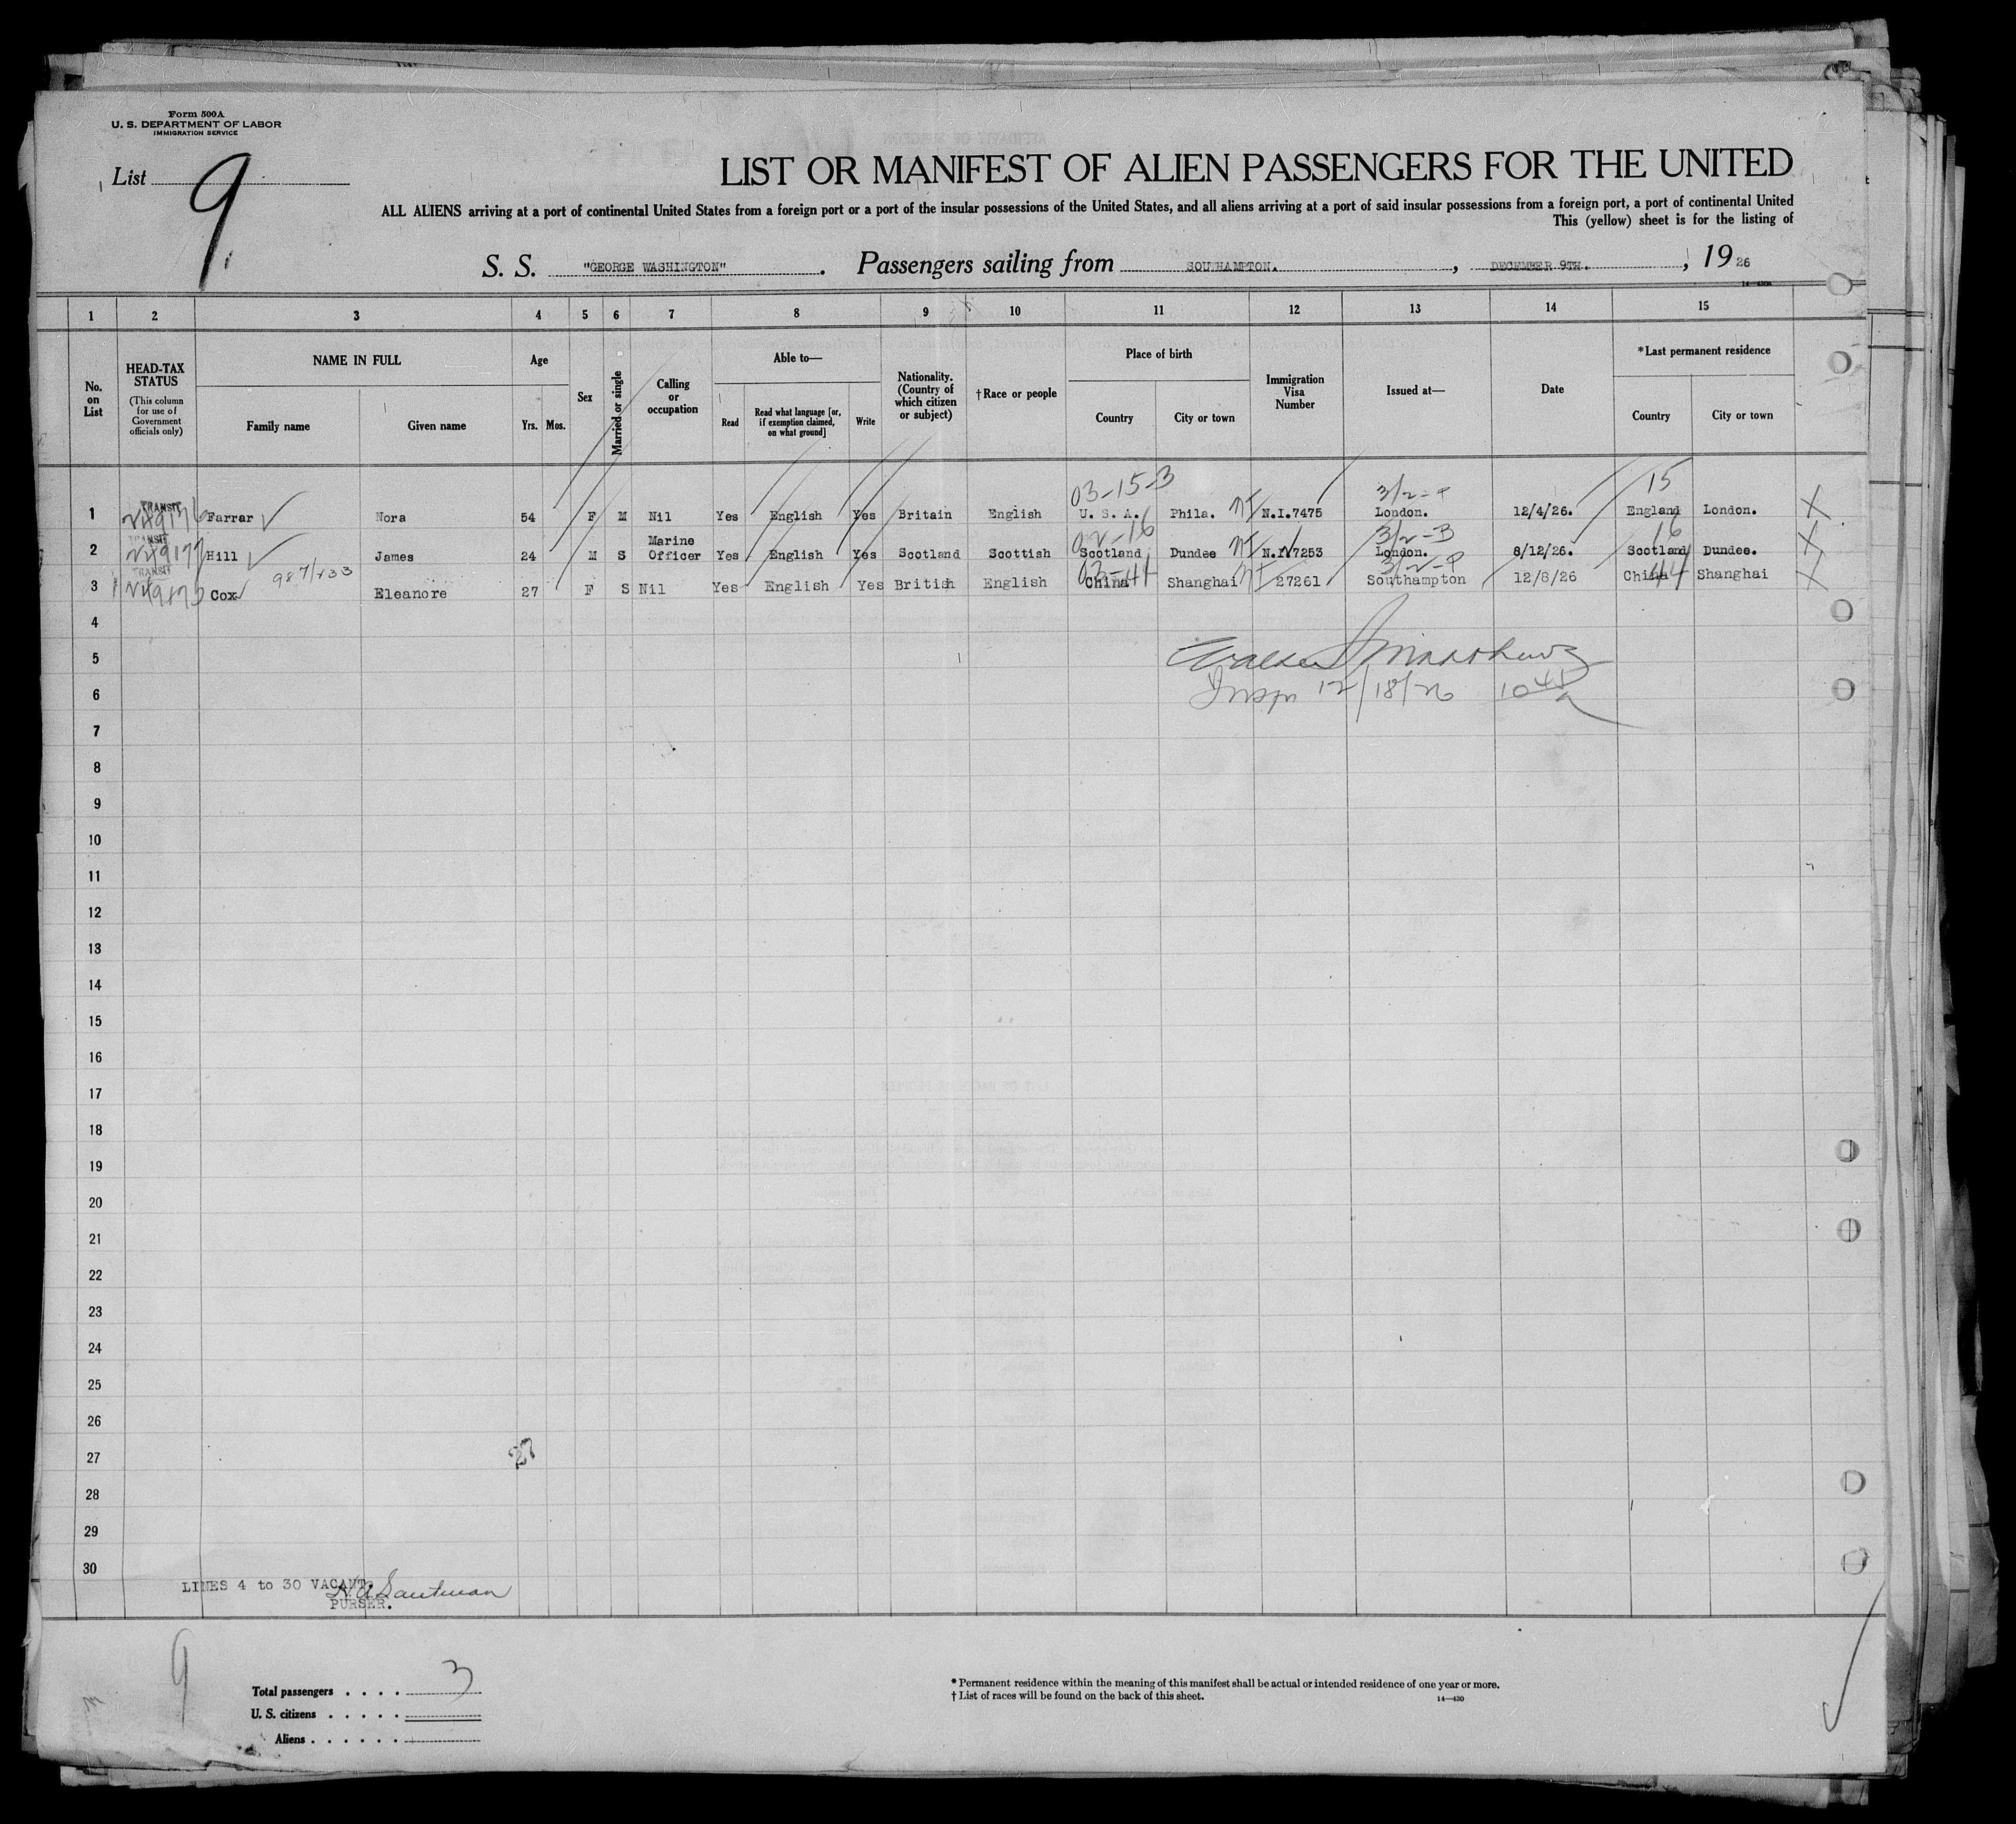 Form 500A
U. S. DEPARTMENT OF LABOR
IMMIGRATION SERVICE
List 9
LIST OR MANIFEST OF ALIEN PASSENGERS FOR THE UNITED
ALL ALIENS arriving at a port of continental United States from a foreign port or a port of the insular possessions of the United States, and all aliens arriving at a port of said insular possessions from a foreign port, a port of continental United
This (yellow) sheet is for the listing of
S. S. "GEORGE WASHINGTON". Passengers sailing from SOUTHAMPTON., DECEMBER 9TH., 1926
1 2 3 4 5 6 7 8 9 10 11 12 13 14 15
No. on List
HEAD-TAX STATUS
(This column for use of Government officials only)
NAME IN FULL
Family name Given name
Age
Yrs. Mos.
Sex
Married or single
Calling or occupation
Able to—
Read
Read what language [or, if exemption claimed, on what ground]
Write
Nationality. (Country of which citizen or subject)
†Race or people
Place of birth
Country City or town
Immigration Visa Number
Issued at—
Date
*Last permanent residence
Country City or town
03-15-3 3/2-P 15
1 TRANSIT Farrar Nora 54 F M Nil Yes English Yes Britain English U. S. A. Phila. N.I.7475 London. 12/4/26. England London. X
02-16 3/2-B 16
2 TRANSIT Hill James 24 M S Marine Officer Yes English Yes Scotland Scottish Scotland Dundee N.I.7253 London. 8/12/26. Scotland Dundee. X
03-44 3/2-P 44
3 TRANSIT Cox 987/133 Eleanore 27 F S Nil Yes English Yes British English China Shanghai 27261 Southampton 12/8/26 China Shanghai X
4
5
6 12/18/26
7
8
9
10
11
12
13
14
15
16
17
18
19
20
21
22
23
24
25
26
27 27
28
29
30
LINES 4 to 30 VACANT.
PURSER.
9
Total passengers . . . . 3
U. S. citizens . . . . .
Aliens . . . . . .
* Permanent residence within the meaning of this manifest shall be actual or intended residence of one year or more.
† List of races will be found on the back of this sheet.
14—430